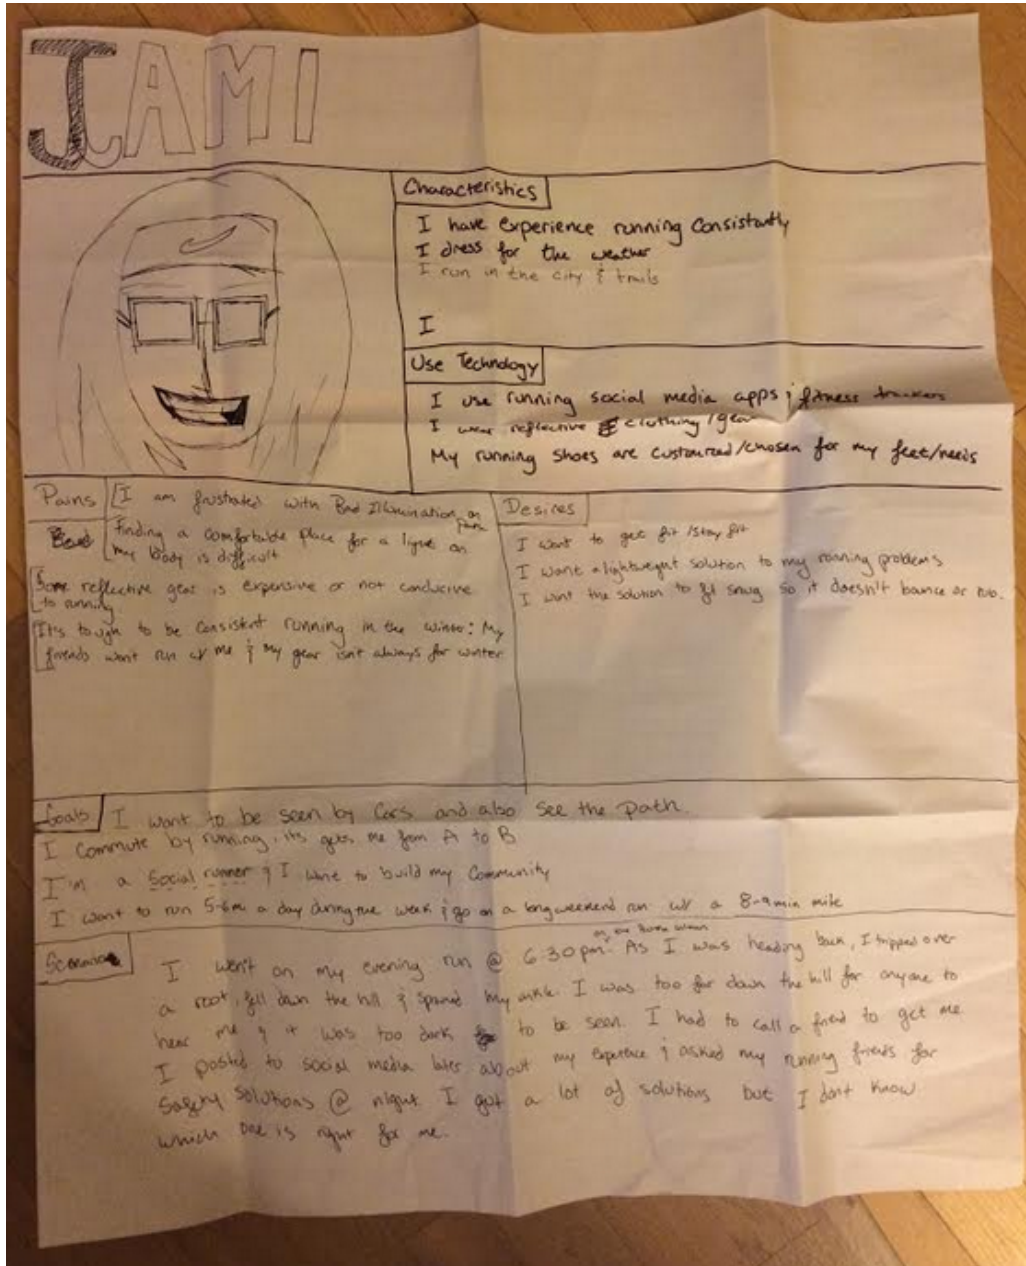 JAMI
Characteristics
I have experience running Consistantly
I dress for the weather
I run in the city & trails
I
Use Technology
I use running social media apps & fitness trackers
I wear reflective clothing/gear
My running shoes are customized/chosen for my feet/needs
Pains
I am frustrated with Bad Illumination on
Finding a comfortable place for a light on
my body is difficult
Some reflective gear is expensive or not conducive
to running
It's tough to be consistent running in the winter: My
friends wont run w/ me & my gear isn't always for winter
Desires
I want to get fit/stay fit
I want a lightweight solution to my running problems
I want the solution to fit snug so it doesn't bounce or rub.
Goals
I want to be seen by Cars and also see the path.
I Commute by running, its gets me from A to B
I'm a Social runner & I want to build my Community
I want to run 5-6mi a day during the week & go on a long weekend run w/ a 8-9 min mile
Scenario
I went on my evening run @ 6:30pm. As I was heading back, I tripped over
a root, fell down the hill & spraind my ankle. I was too far down the hill for anyone to
hear me & it was too dark to be seen. I had to call a friend to get me.
I posted to social media later about my experience & asked my running friends for
Safety Solutions @ night. I got a lot of solutions but I dont know
which one is right for me.